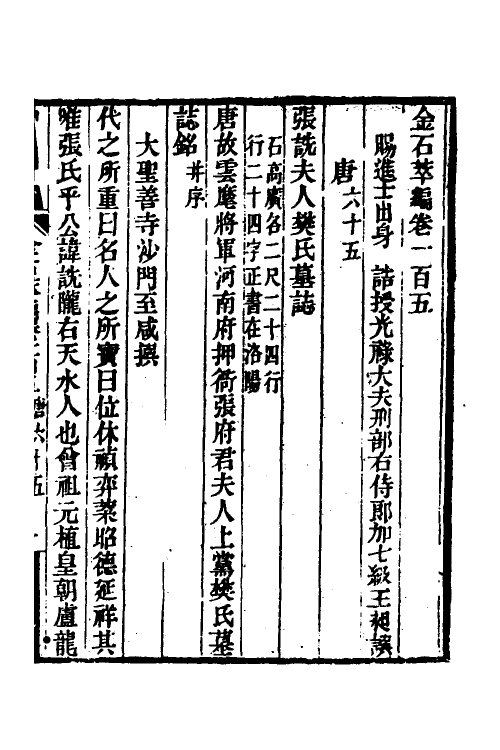 金石萃編卷一百五
賜進士出身　誥授光祿大夫刑部右侍郎加七級王昶譔
唐六十五
張詵夫人樊氏墓誌
石高廣各二尺二十四行
行二十四字正書在洛陽
唐故雲麾將軍河南府押衙張府君夫人上黨樊氏墓
誌銘并序
大聖善寺沙門至咸撰
代之所重曰名人之所寶曰位休禎弈葉昭德延祥其
唯張氏乎公諱詵隴右天水人也曾祖元植皇朝盧龍